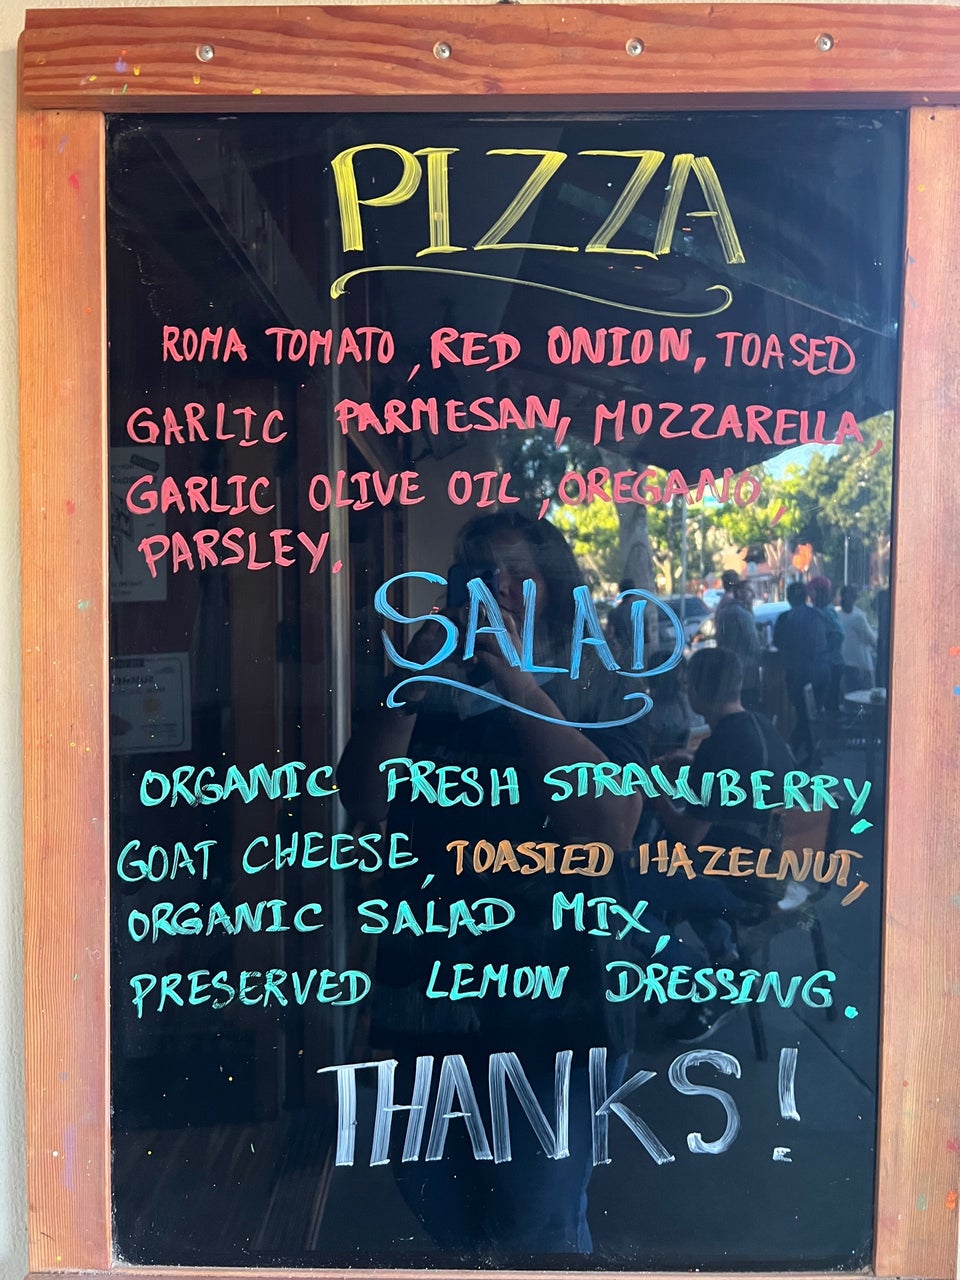 PIZZA
ROMA TOMATO, RED ONION, TOASED
GARLIC PARMESAN, MOZZARELLA,
GARLIC OLIVE OIL, OREGANO,
PARSLEY.
SALAD
ORGANIC FRESH STRAWBERRY,
GOAT CHEESE, TOASTED HAZELNUT,
ORGANIC SALAD MIX,
PRESERVED LEMON DRESSING.
THANKS!